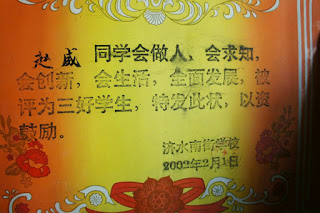 赵威 同学会做人，会求知，
会创新，会生活，全面发展，被
评为三好学生，特发此状，以资
鼓励。
济水南街学校
2002年2月1日